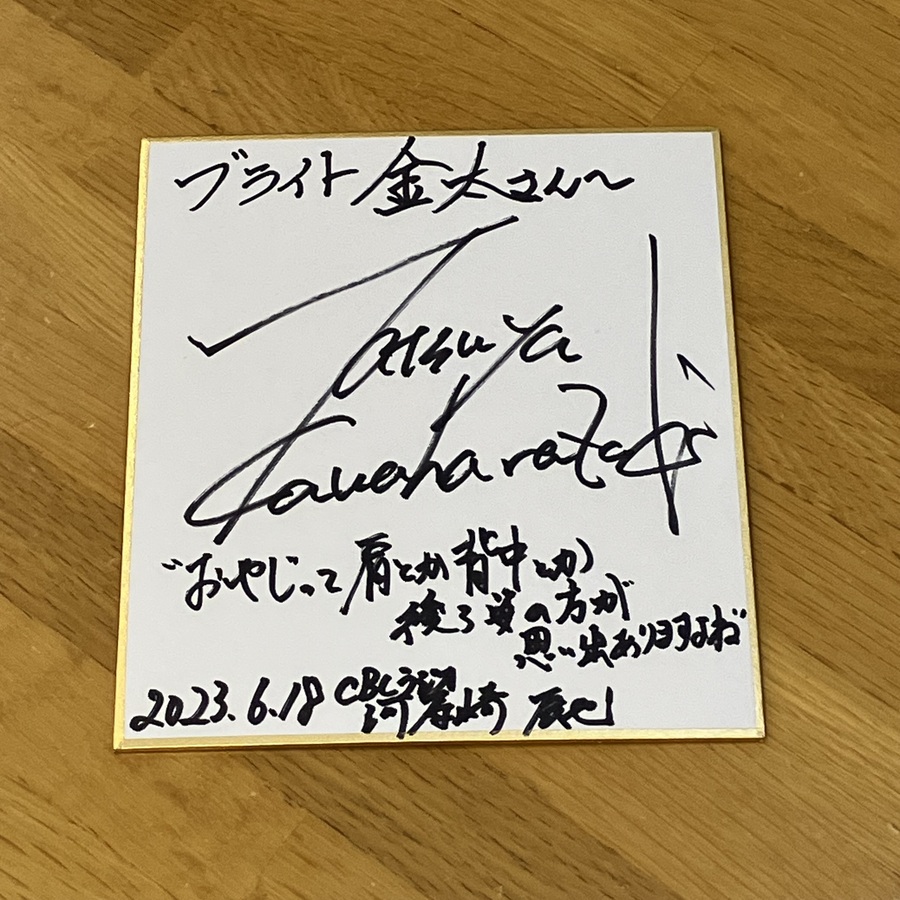 ブライト金太さんへ
Tatsuya
Kawaharazaki
"おやじって肩とか背中とか
後ろ姿の方が
思い出ありますよね"
2023.6.18 CBCラジオ
河原崎 辰也